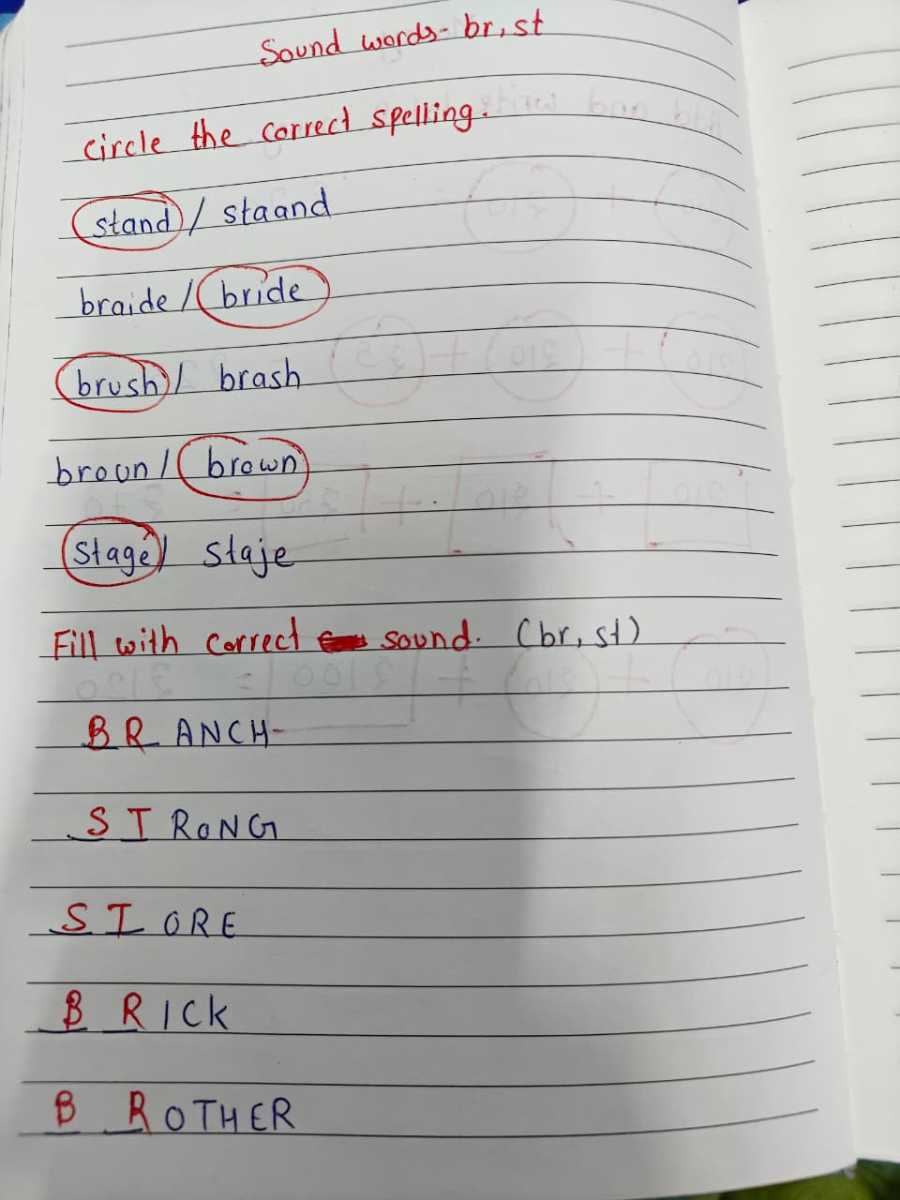 Sound words - br, st
Circle the correct spelling.
stand / staand
braide / bride
brush / brash
broun / brown
Stage / Staje
Fill with correct sound. (br, st)
BR ANCH
ST RONG
ST ORE
B R ICK
B R OTHER